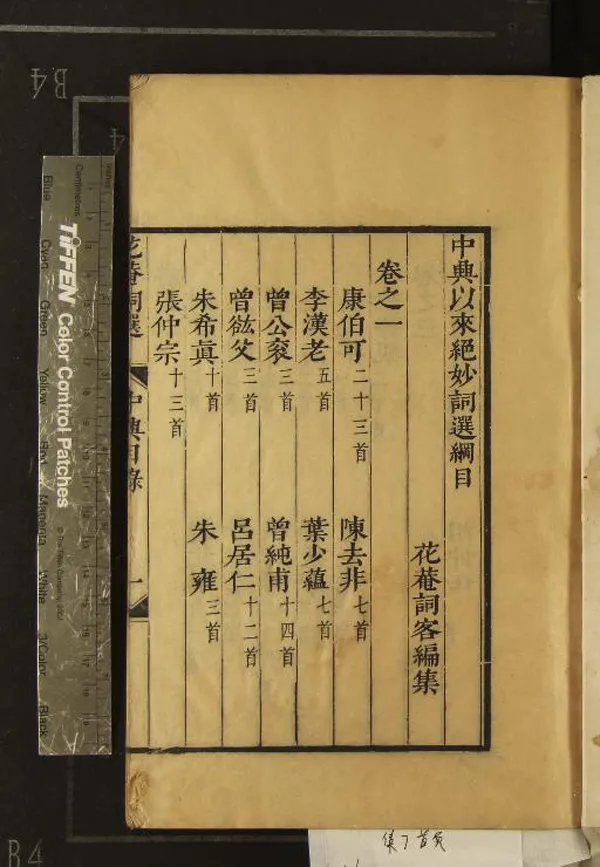 中興以來絕妙詞選綱目
花菴詞客編集
卷之一
康伯可二十三首 陳去非七首
李漢老五首 葉少蘊七首
曾公袞三首 曾純甫十四首
曾紘父三首 呂居仁十二首
朱希眞十首 朱雍三首
張仲宗十三首
花菴詞選 中興目錄 一
B4
TIFFEN Color Control Patches
© The Tiffen Company, 2007
Centimetres
Inches
Blue
Cyan
Green
Yellow
Red
Magenta
White
3/Color
Black
B4